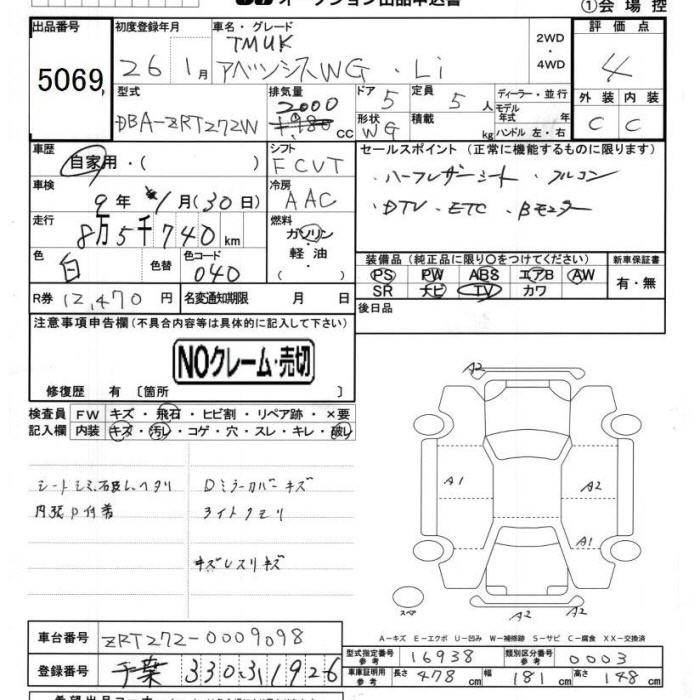 オークション出品申込書
①会場控
出品番号 初度登録年月 車名・グレード 評価点
5069 26 1月 TMUK アベンシスWG・Li 2WD・4WD 4
型式 排気量 ドア 定員 ディーラー・並行 外装 内装
DBA-ZRT272W 2000 1,980 cc 5 5人 モデル年式 年 C C
形状 WG 積載 kg ハンドル 左・右
車歴 シフト セールスポイント (正常に機能するものに限ります)
自家用・( ) FCVT ・ハーフレザーシート ・フルコン
車検 9年 1月(30日) 冷房 AAC ・DTV ・ETC ・Bモニター
走行 8万5千740km 燃料 ガソリン・軽油・( )
色 白 色替 色コード 040
装備品 (純正品に限り○をつけてください) 新車保証書
PS PW ABS エアB AW 有・無
SR ナビ TV カワ
R券 12,470円 名変通知期限 月 日 後日品
注意事項申告欄 (不具合内容等は具体的に記入して下さい)
NOクレーム・売切
修復歴 有 〔箇所 〕
検査員 FW キズ・飛石・ヒビ割・リペア跡・×要
記入欄 内装 キズ・汚れ・コゲ・穴・スレ・キレ・破れ
シートシミ、 Dミラーカバーキズ
内張P付着 ライトクモリ
キズレスリキズ
A2
A1 A2
A1
スペア A2 A2
A-キズ E-エクボ U-凹み W-補修跡 S-サビ C-腐食 XX-交換済
車台番号 ZRT272-0009098
型式指定番号 参考 16938 類別区分番号 参考 0003
登録番号 千葉 330 す 1926
車庫証明用 参考 長さ 478cm 幅 181cm 高さ 148cm
希望出品コーナー